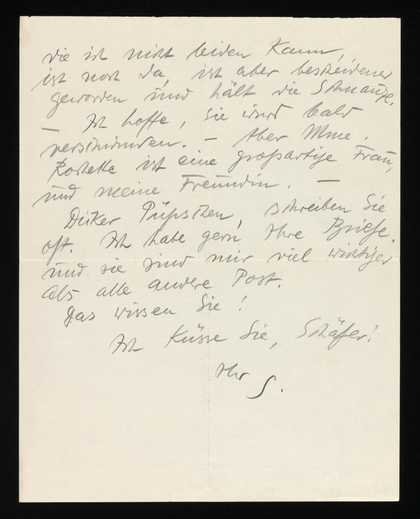 die ich nicht leiden kann,
ist noch da, ist aber bescheidener
geworden und hält die Schnauze.
– Ich hoffe, sie wird bald
verschwinden. – Aber Mme.
Rosette ist eine großartige Frau,
und meine Freundin. –
Dicker Püpschen, schreiben Sie
oft. Ich habe gern Ihre Briefe.
und sie sind mir viel wichtiger
als alle andere Post.
Das wissen Sie!
Ich küsse Sie, Schäfer!
Ihr
S.